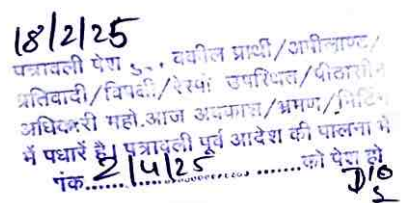 18/2/25
पत्रावली पेश हु... वकील प्रार्थी/अपीलाण्ट/
प्रतिवादी/विपक्षी/रेस्पो उपस्थित/पीठासीन
अधिकारी महो.आज अवकाश/भ्रमण/मिटिंग
में पधारें है। पत्रावली पूर्व आदेश की पालना में
2/4/25......को पेश हो